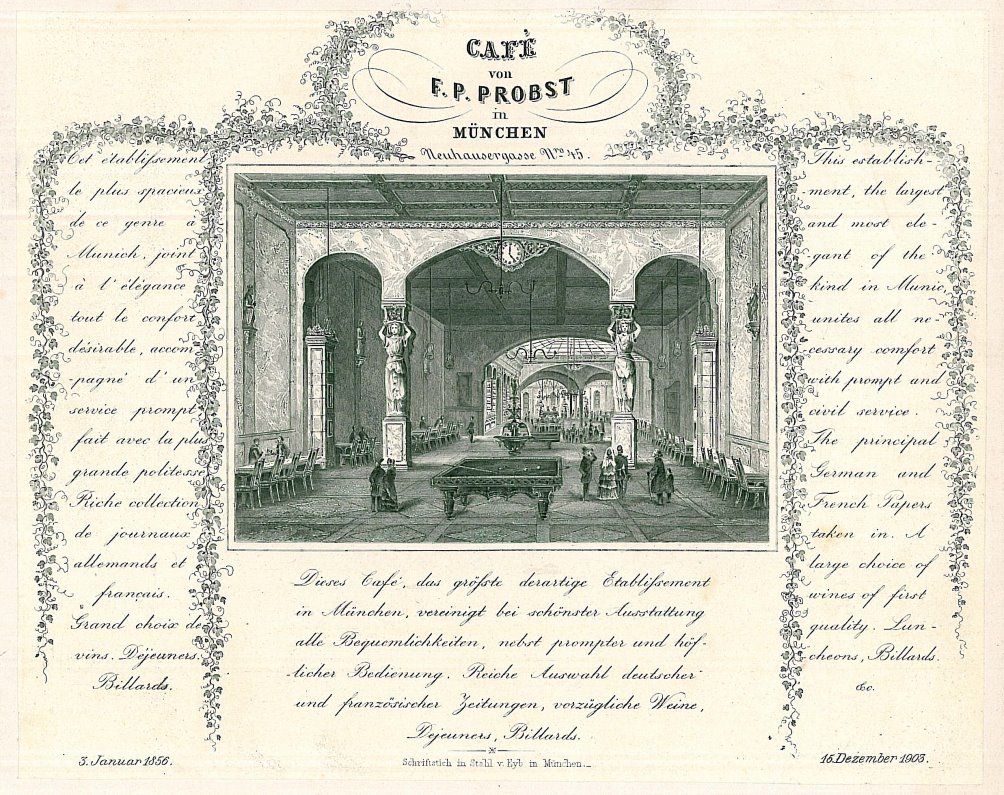 CAFÈ
von
F. P. PROBST
in
MÜNCHEN
Neuhausergasse Nro 45.
Cet établiſsement
le plus spacieux
de ce genre à
Munich, joint
à l'élégance
tout le confort
désirable, accom-
-pagné d'un
service prompt
fait avec la plus
grande politesse
Riche collection
de journaux
allemands et
français.
Grand choix de
vins. Déjeuners.
Billards.
This establish-
-ment, the largest
and most ele-
gant of the
kind in Munic,
unites all ne-
cessary comfort
with prompt and
civil service.
The principal
German and
French Papers
taken in. A
large choice of
wines of first
quality. Lun-
cheons, Billards.
&c.
Dieses Café, das größte derartige Etabliſsement
in München, vereinigt bei schönster Ausstattung
alle Bequemlichkeiten, nebst prompter und höf-
-licher Bedienung. Reiche Auswahl deutscher
und französischer Zeitungen, vorzügliche Weine,
Dejeuners, Billards.
3. Januar 1856.
Schriftstich in Stahl v. Eyb in München.
15. Dezember 1903.